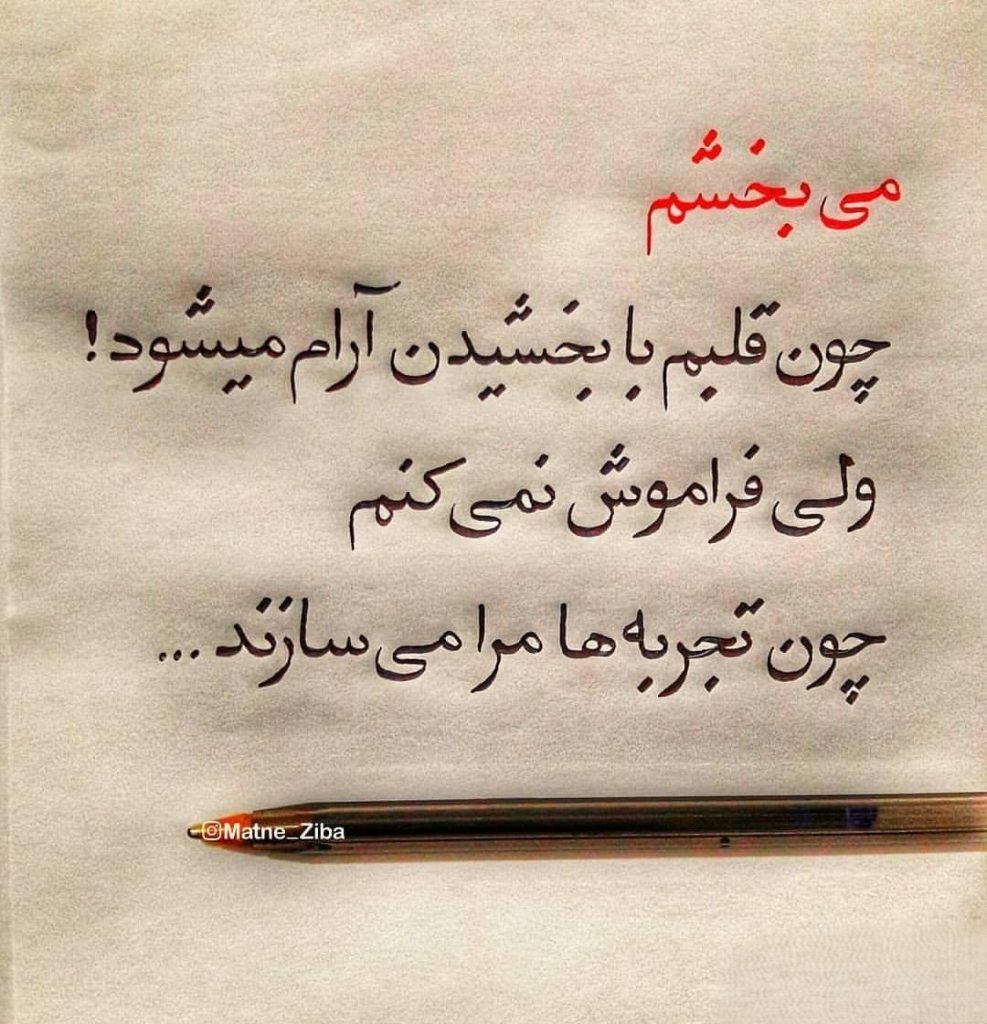 می بخشم
چون قلبم با بخشیدن آرام میشود!
ولی فراموش نمی کنم
چون تجربه ها مرا می سازند ...
Matne_Ziba